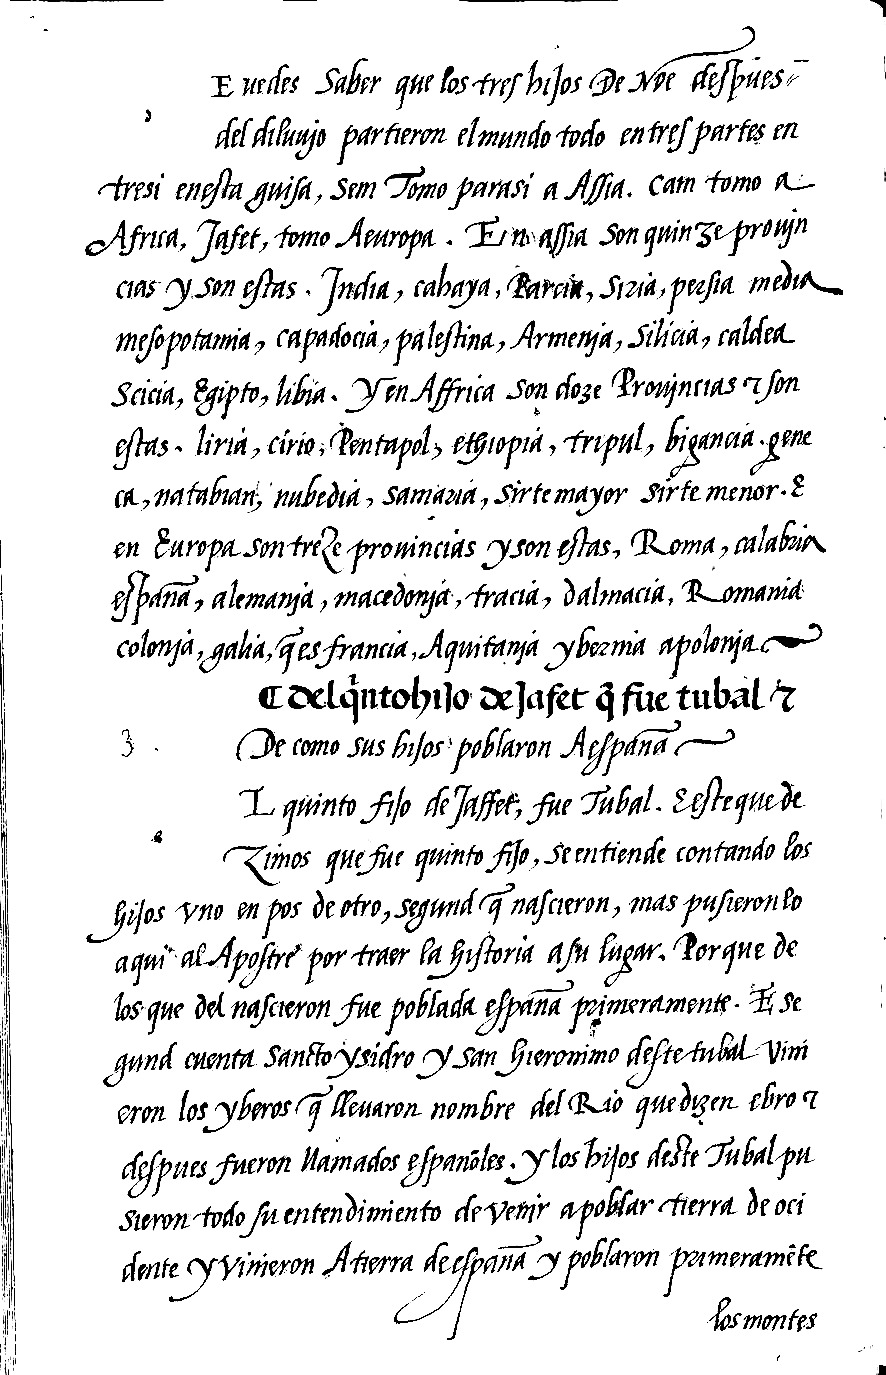 E uedes Saber que los tres hijos De Noe despues
del diluujo partieron el mundo todo en tres partes en
tresi en esta guisa, Sem Tomo parasi a Assia. Cam tomo a
Africa, Jafet, tomo Aeuropa. En assia son quinze prouin
cias y son estas. India, cabaya, Parcia, Siria, persia media
mesopotamia, capadocia, palestina, Armenja, Silicia, caldea
Scicia, Egipto, libia. Y en Affrica son doze Prouincias ⁊ son
estas. liria, cirio, Pentapol, ethiopia, tripul, bigancia. gene
ca, natabian, nubedia, samaria, sirte mayor sirte menor. E
en Europa son treze prouincias y son estas, Roma, calabria
españa, alemanja, macedonja, tracia, Dalmacia, Romania
colonja, galia, q̃ es francia, Aquitanja ybernia apolonja
¶ Del q̃nto hijo de Jafet q̃ fue tubal ⁊
3. De como sus hijos poblaron A españa
L quinto fijo de Jaffet, fue Tubal. E este que de
Zimos que fue quinto fijo, se entiende contando los
hijos vno en pos de otro, segund q̃ nascieron, mas pusieron lo
aqui al Apostre por traer la historia a su lugar. Porque de
los que del nascieron fue poblada españa primeramente. E se
gund cuenta Sancto ysidro y san hieronimo deste tubal vini
eron los yberos q̃ lleuaron nombre del Rio que dizen ebro ⁊
despues fueron llamados españoles. y los hijos deste Tubal pu
sieron todo su entendimiento de venir a poblar tierra de oci
dente y vinieron A tierra de españa y poblaron primeramẽte
los montes